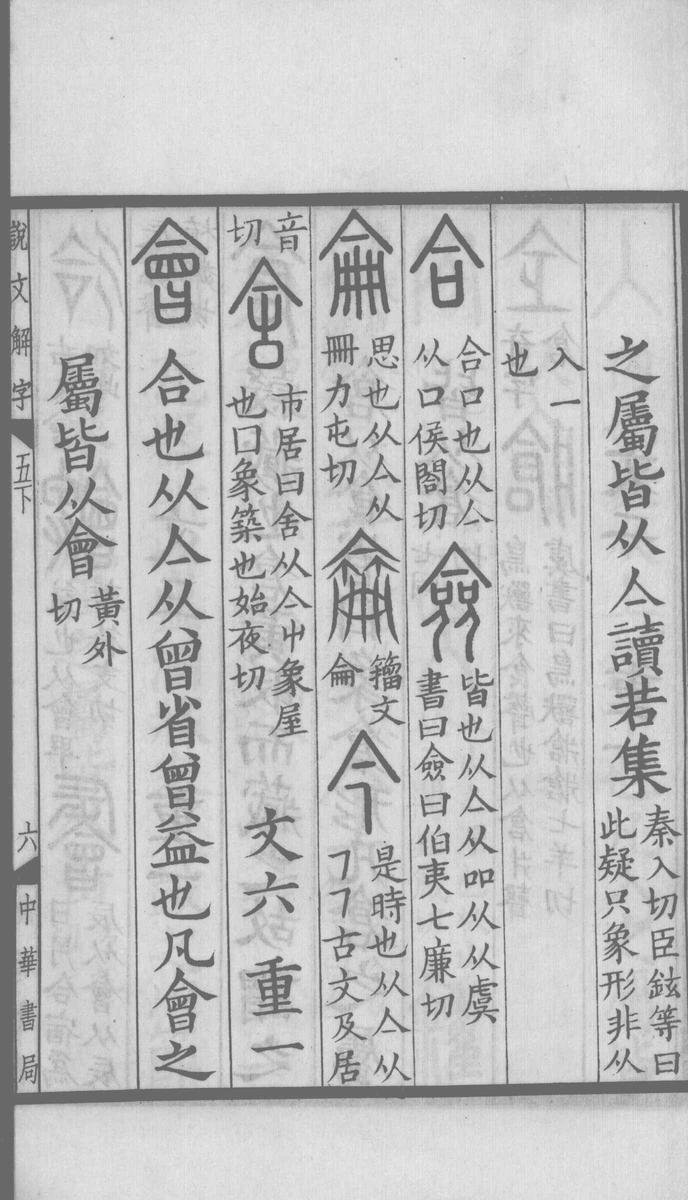 之屬皆从亼讀若集秦入切臣鉉等曰
此疑只象形非从
入一
也
合合口也从亼
从口侯閤切
僉皆也从亼从吅从从虞
書曰僉曰伯夷七廉切
侖思也从亼从
冊力屯切
籀文
侖
今是時也从亼从
㇇㇇古文及居
音
切
舍市居曰舍从亼屮象屋
也囗象築也始夜切
文六 重一
會合也从亼从曾省曾益也凡會之
屬皆从會黃外
切
說文解字 五下 六 中華書局